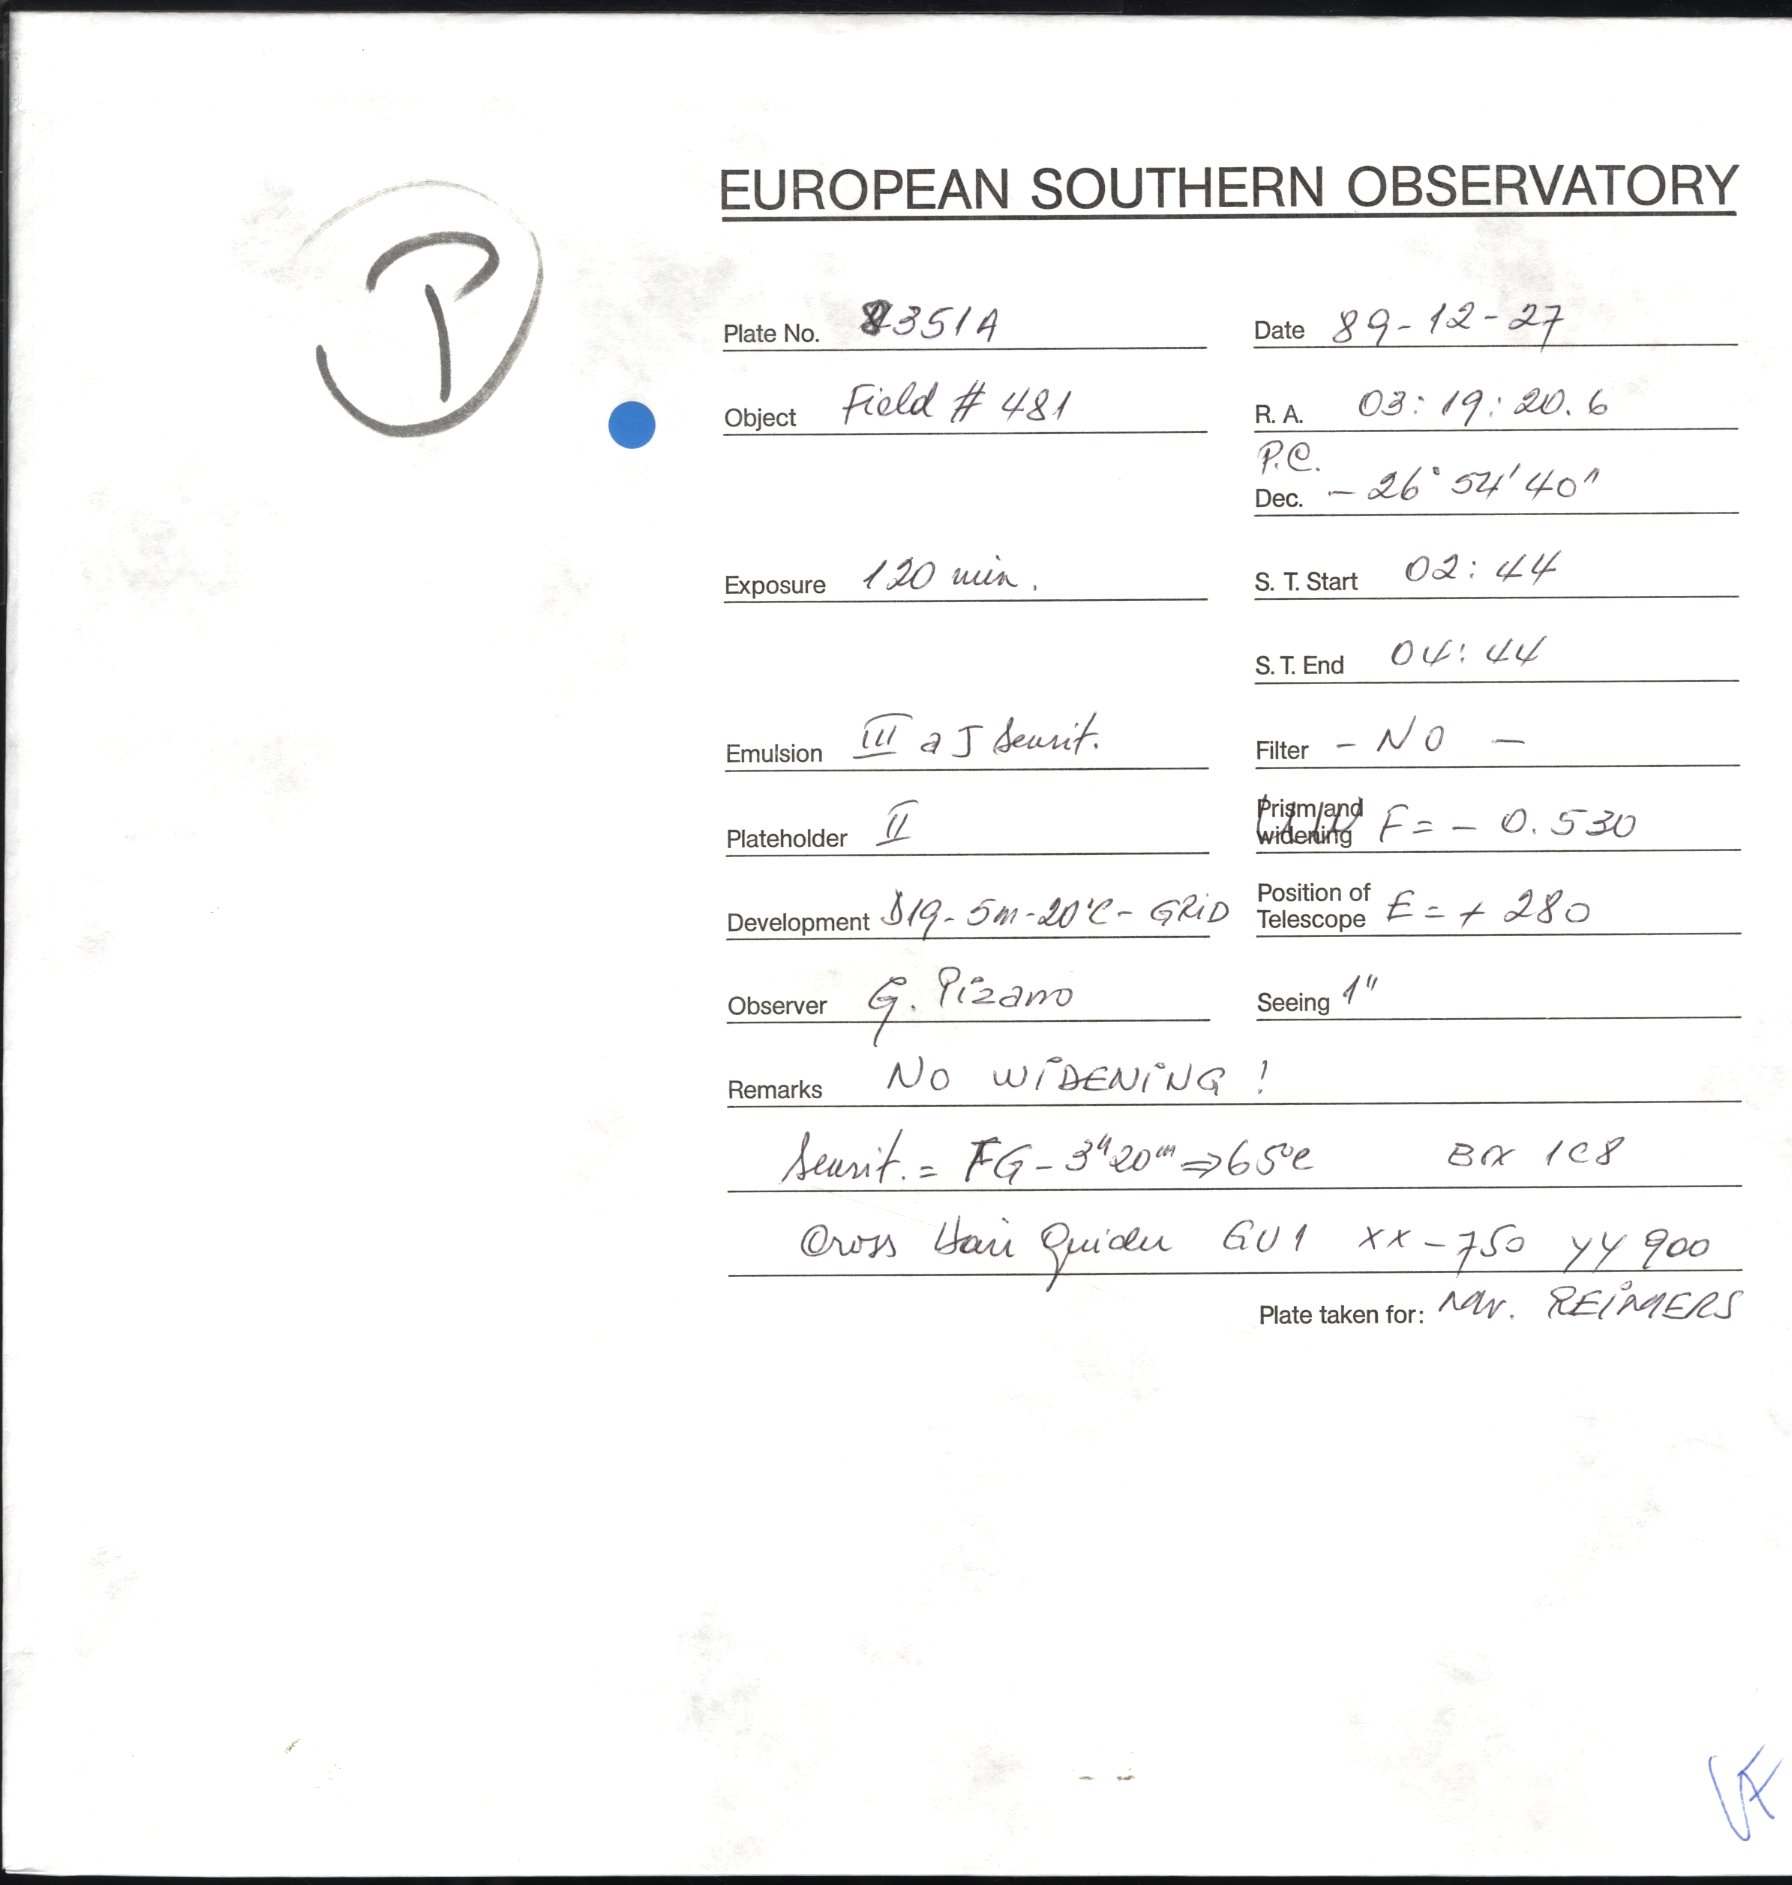 EUROPEAN SOUTHERN OBSERVATORY
P
Plate No. 8351A Date 89-12-27
Object Field # 481 R. A. 03: 19: 20. 6
P.C.
Dec. - 26° 54' 40"
Exposure 120 min. S. T. Start 02: 44
S. T. End 04: 44
Emulsion III a J Sensit. Filter - NO -
Plateholder II Prism and widening F = - 0. 530
Development D19- 5m- 20°C- GRiD Position of Telescope E = + 280
Observer G. Pizarro Seeing 1"
Remarks NO WiDENiNG !
Sensit. = FG - 3h 20m ⇒ 65°C 1C8
Cross Hair Guider GU1 XX - 750 YY 900
Plate taken for: REiMERS